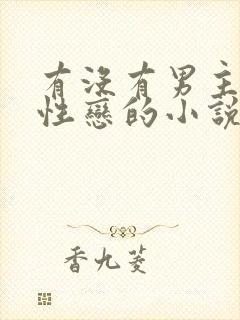 有没有男主
性戀的小説
香九菱